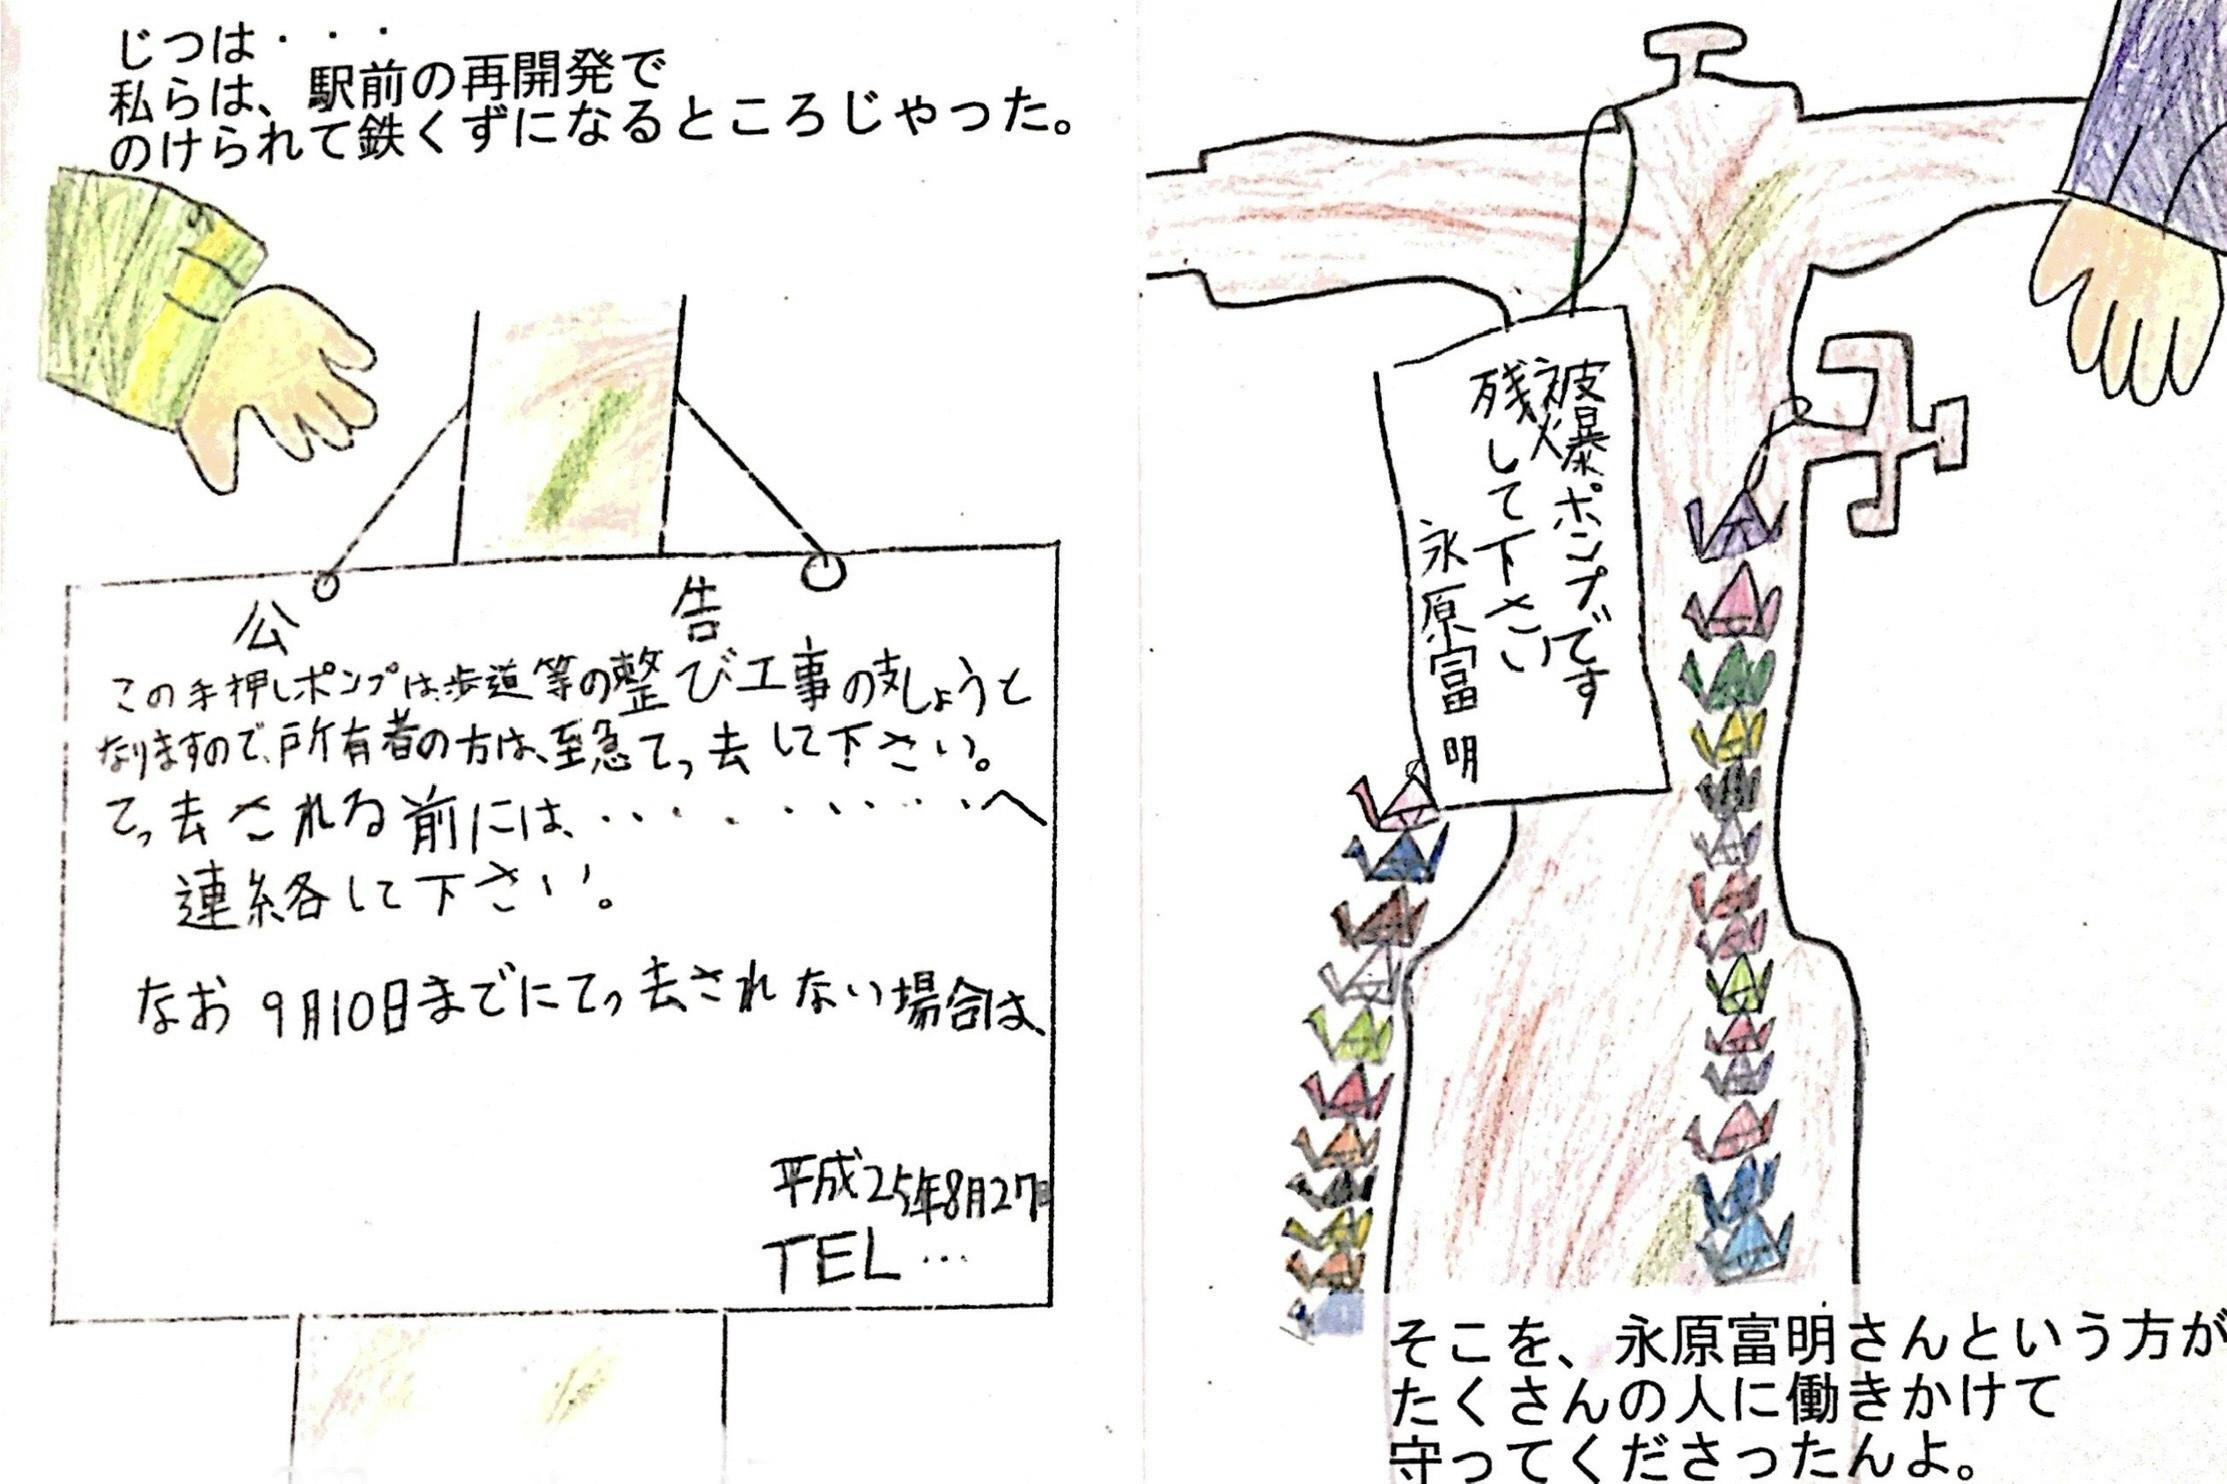 じつは・・・
私らは、駅前の再開発で
のけられて鉄くずになるところじゃった。
公告
この手押しポンプは、歩道等の整び工事の支しょうと
なりますので、所有者の方は、至急てっ去して下さい。
てっ去される前には、・・・・・・・・・へ
連絡して下さい。
なお9月10日までにてっ去されない場合は、
平成25年8月27日
TEL…
被爆ポンプです
残して下さい
永原富明
そこを、永原富明さんという方が
たくさんの人に働きかけて
守ってくださったんよ。